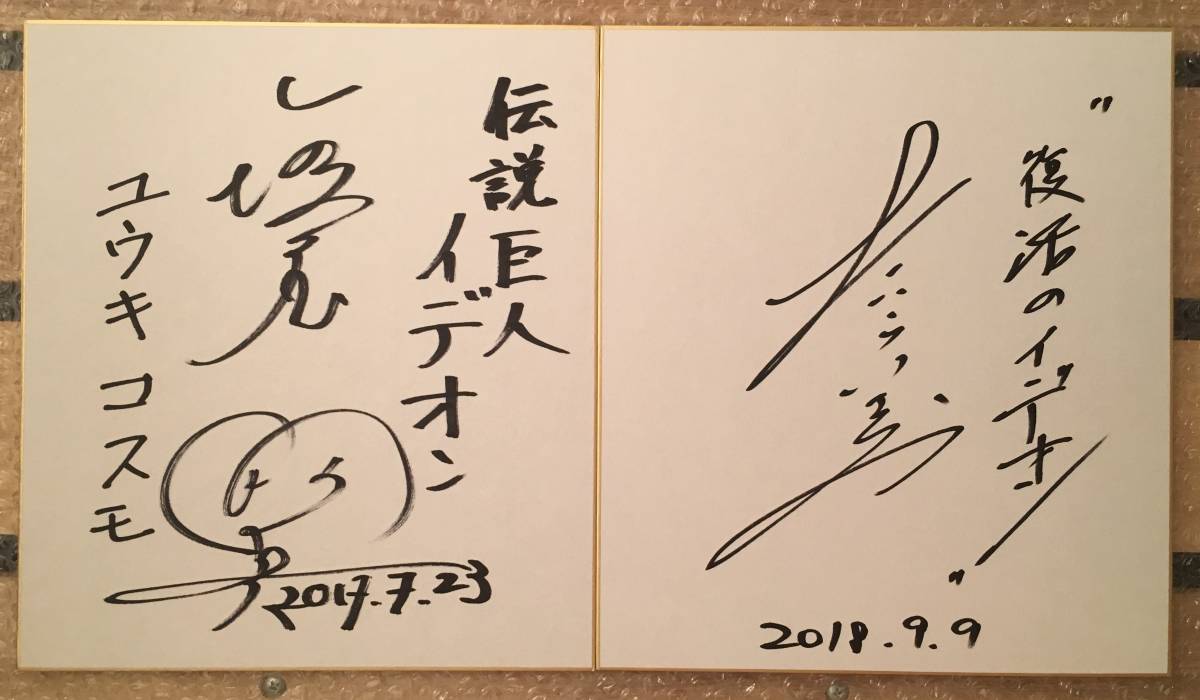 伝説巨人
イデオン
ユウキコスモ
2017.7.23
"復活のイデオン"
2018.9.9